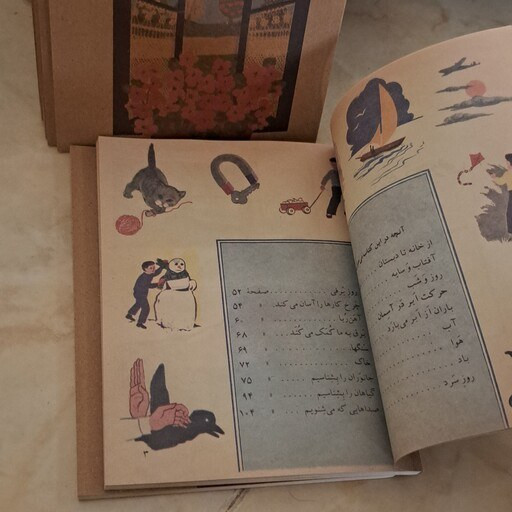 آنچه در این کتاب
از خانه تا دبستان
آفتاب و سایه
روز و شب
حرکت ابر در آسمان
باران از ابر می‌بارد
آب
هوا
باد
روز سرد
روز برفی صفحهٔ ۵۲
چرخ کارها را آسان می‌کند. » ۵۴
آهن‌ربا » ۶۰
برق به ما کمک می‌کند » ۶۸
سنگها » ۶۹
خاک » ۷۲
جانوران را بشناسیم » ۷۵
گیاهان را بشناسیم » ۹۴
صداهایی که می‌شنویم » ۱۰۴
۳